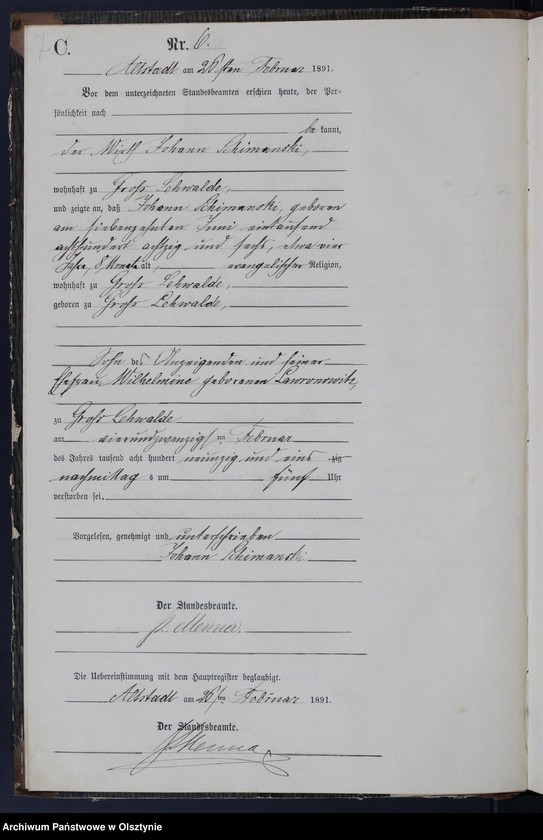 7 C. Nr. 6.
Altstadt am 26sten Februar 1891.
Vor dem unterzeichneten Standesbeamten erschien heute, der Per-
sönlichkeit nach
be kannt,
der Wirth Johann Schimanski,
wohnhaft zu Groß Lehwalde,
und zeigte an, daß Johann Schimanski, geboren
am siebenzehnten Juni eintausend
achthundert achtzig und sechs, etwa vier
Jahre, 8 Monate alt, evangelischer Religion,
wohnhaft zu Groß Lehwalde,
geboren zu Groß Lehwalde,
Sohn des Anzeigenden und seiner
Ehefrau Wilhelmine geborenen Lawronowitz
zu Groß Lehwalde
am vierundzwanzigsten Februar
des Jahres tausend acht hundert neunzig und eins zig
nachmittag s um fünf Uhr
verstorben sei.
Vorgelesen, genehmigt und unterschrieben
Johann Schimanski
Der Standesbeamte.
Menna.
Die Uebereinstimmung mit dem Hauptregister beglaubigt.
Altstadt am 26sten Februar 1891.
Der Standesbeamte.
Menna
Archiwum Państwowe w Olsztynie